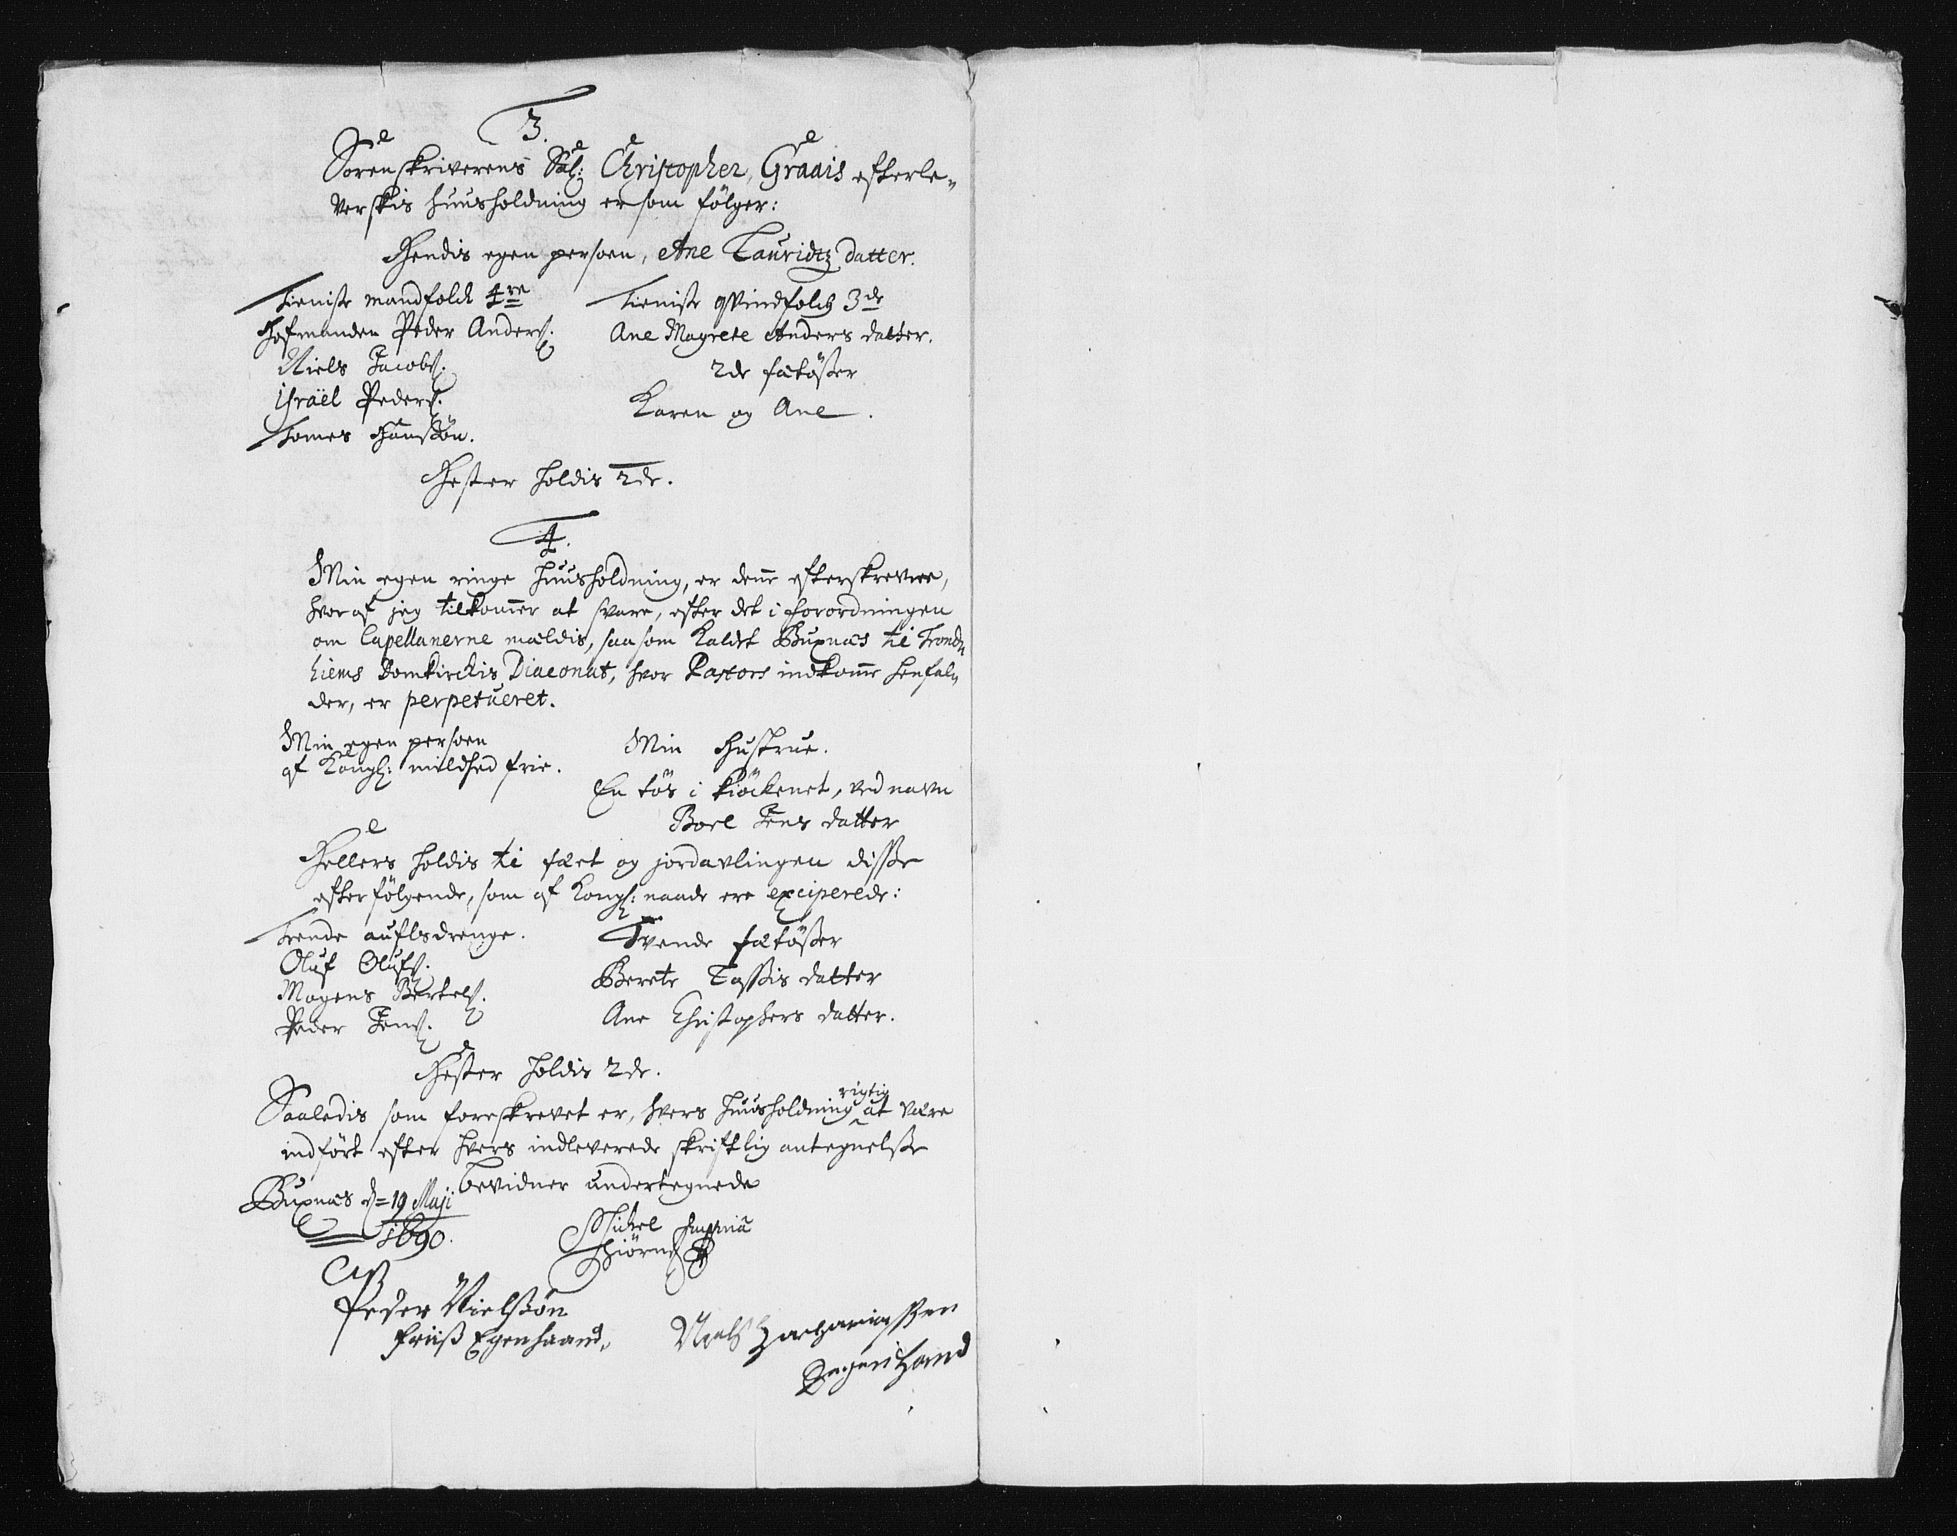 3.
Sorenskriverens Sal: Christopher Graais efterle-
verskis huusholdning er som fölger:
Hendis egen persoen, Ane Lauridtz datter.
Tieniste mandfolch 4re
Hofmanden Peder Anders.
Niels Jacobs.
Israël Peders.
Tomes Hanssön.
Tieniste qvindfolch 3de
Ane Magrete Anders datter.
2de fætösser
Karen og Ane.
Hester holdis 2de.
4.
Min egen ringe huusholdning, er denne efterskrevne,
hvoraf jeg tilkommer at svare, efter det i forordningen
om Capellanerne mældis, saasom Kaldet Buxnæs til Trond-
hiems Domkirckis Diaconat, hvor Pastors indkomme henfal-
der, er perpetueret.
Min egen persoen
af Kongl: mildhed frie.
Min Hustrue.
En tös i kiöckenet, ved navn
Boel Jens datter
Hellers holdis til fæet og jordavlingen disse
efterfölgende, som af Kongl: naade ere exciperede:
Trende auflsdrenge.
Oluf Olufs.
Mogens Bertels.
Peder Jens.
Tvende fætösser
Berete Tassis datter
Ane Christophers datter.
Hester holdis 2de.
Saaledis som foreskrevet er, hvers huusholdning rigtig at være
indfört efter hvers indleverede skriftlig antegnelse
bevidner undertegnede
Buxnæs d= 19 Maji
1690.
Michel
Hiörn
Peder Nielssön
Friiss Egenhaand.
Niels Zachariassen
Egenhand